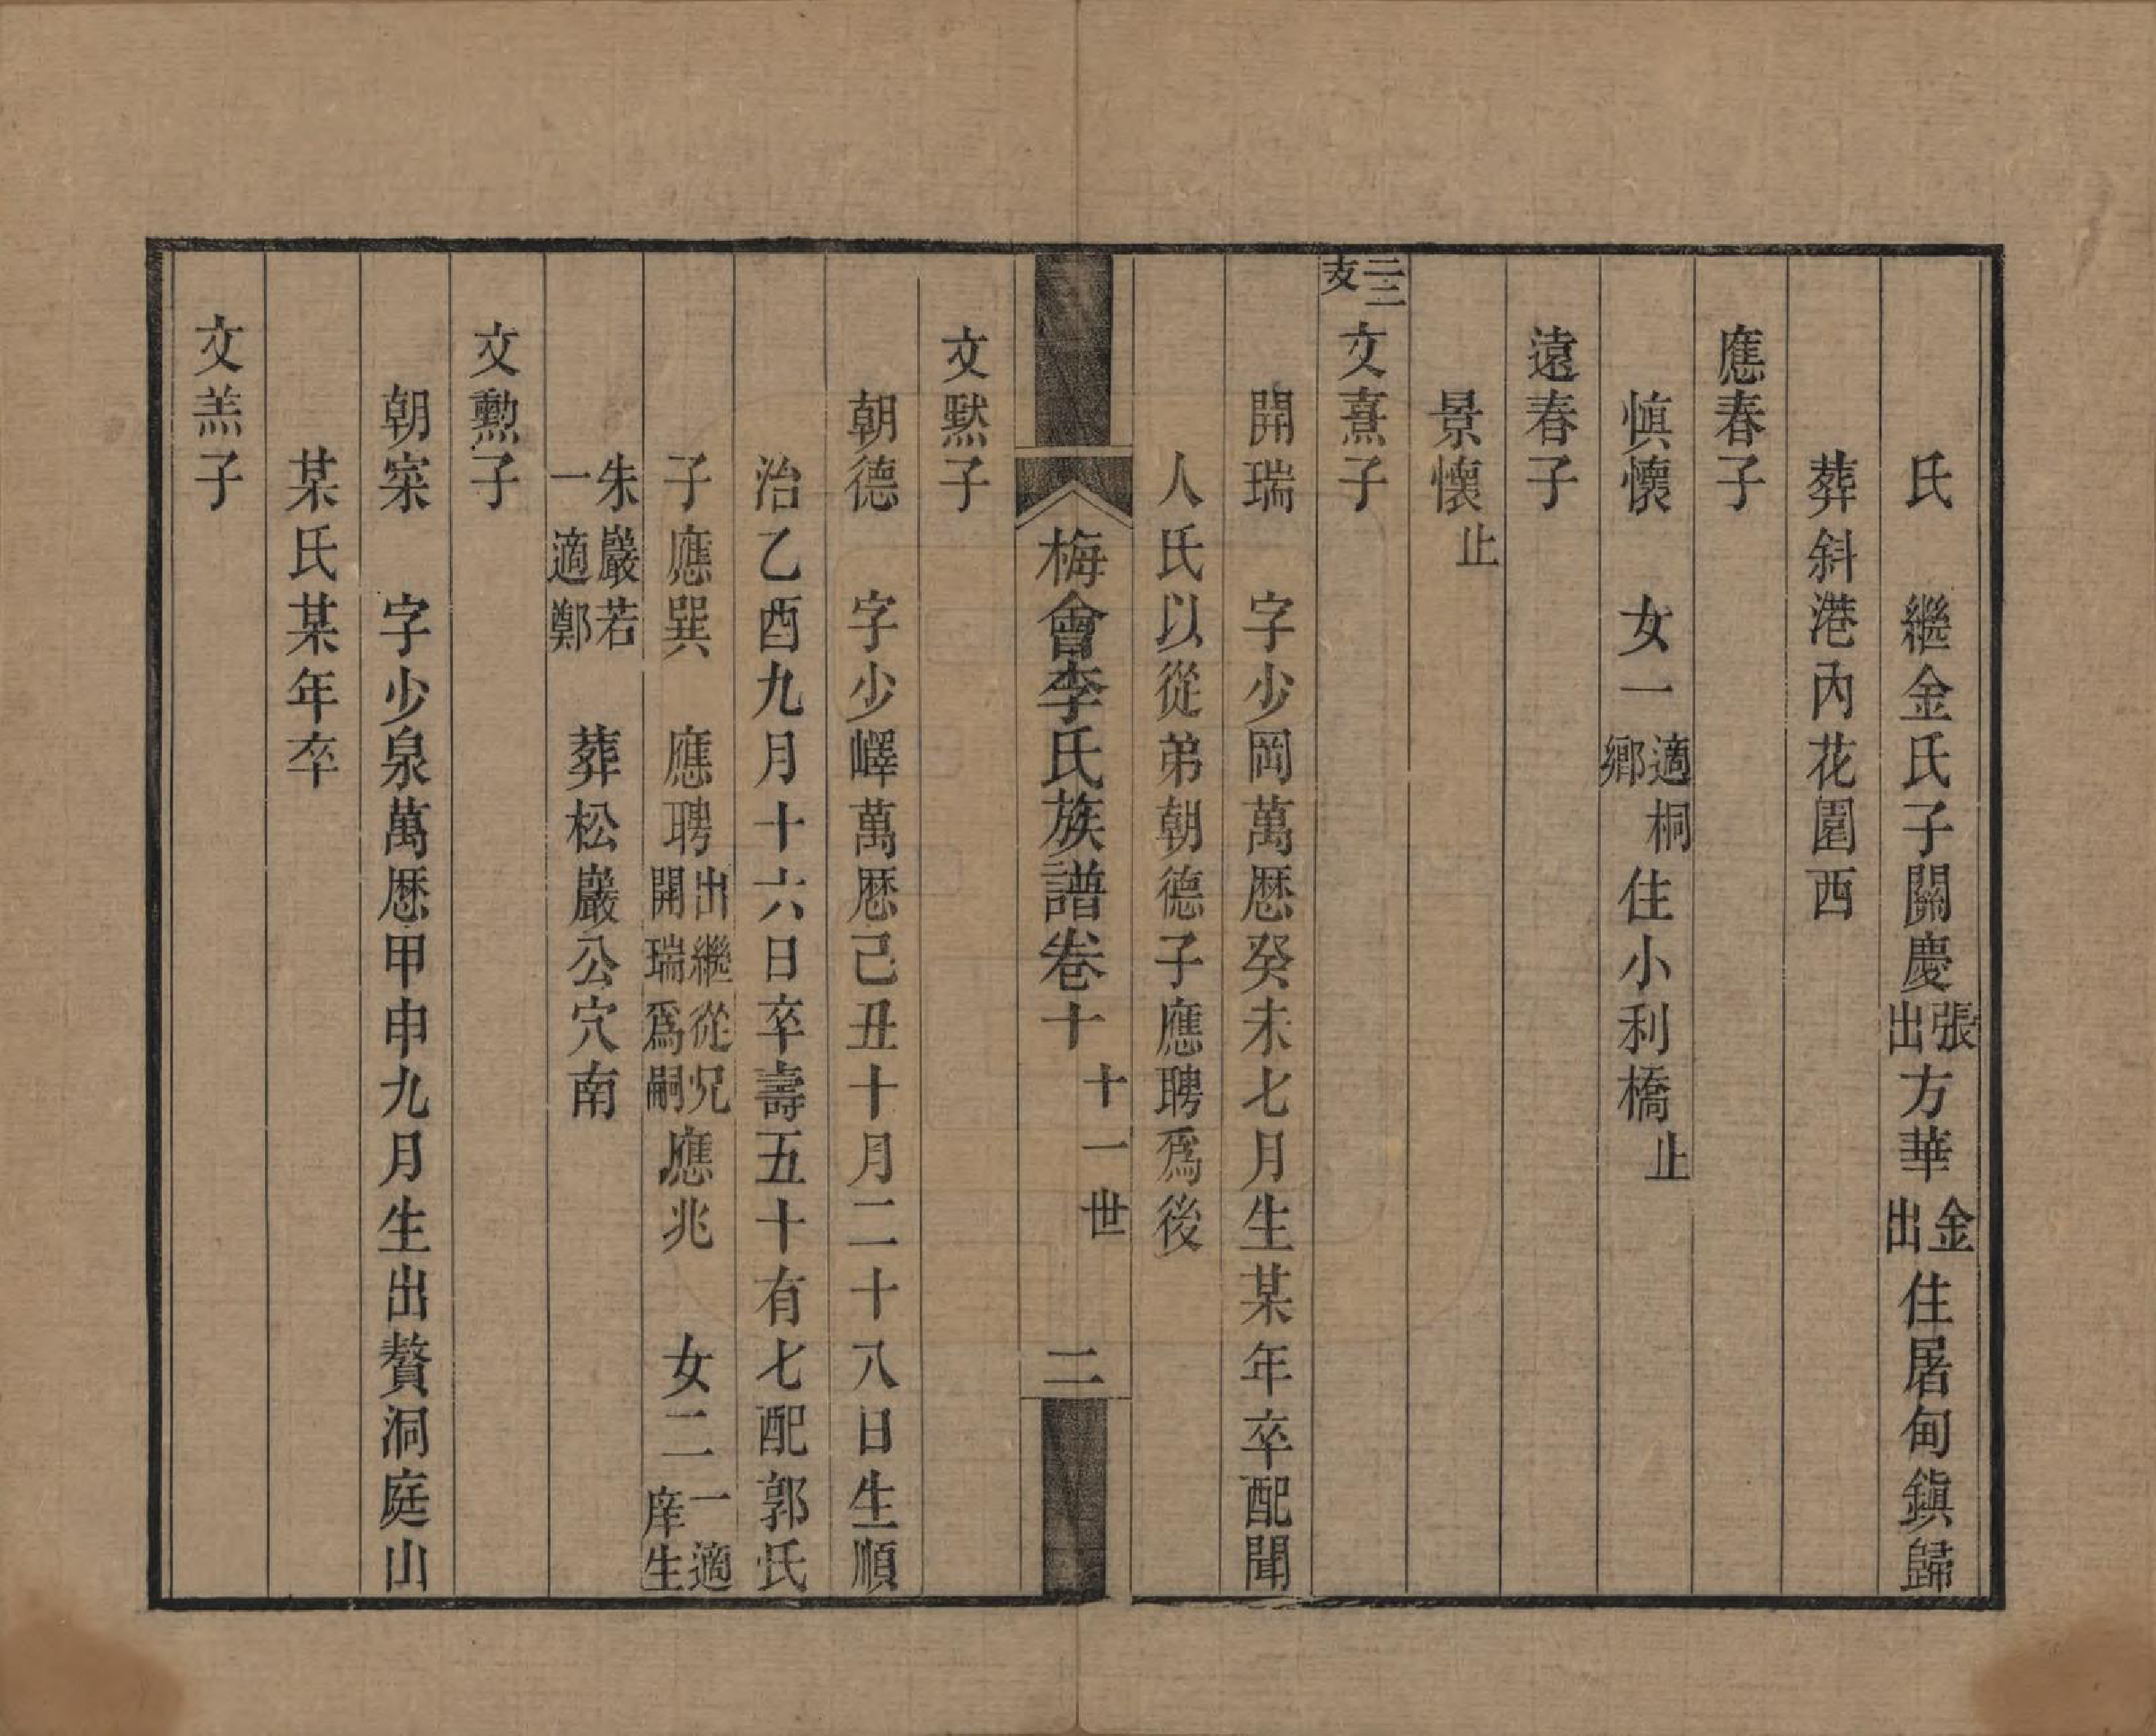 氏　繼金氏子關慶張出方華金出住屠甸鎭歸
葬斜港內花園西
應春子
愼懷　女一適桐鄉住小利橋止
遠春子
景懷止
二三支文熹子
開瑞　字少岡萬厯癸未七月生某年卒配聞
人氏以從弟朝德子應聘爲後
梅會李氏族譜卷十　十一世　二
文默子
朝德　字少嶧萬厯己丑十月二十八日生順
治乙酉九月十六日卒壽五十有七配郭氏
子應巽　應聘出繼從兄開瑞爲嗣應兆　女二一適庠生
朱巖若一適鄭　葬松巖公穴南
文勲子
朝寀　字少泉萬厯甲申九月生出贅洞庭山
某氏某年卒
文羔子